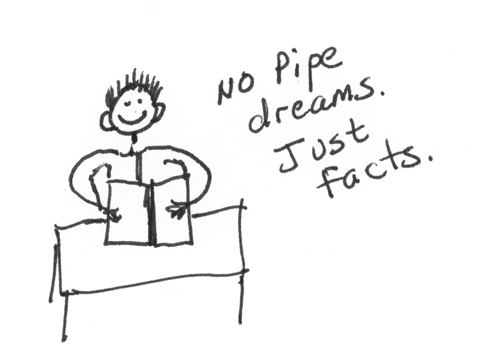 No Pipe
dreams.
Just
facts.